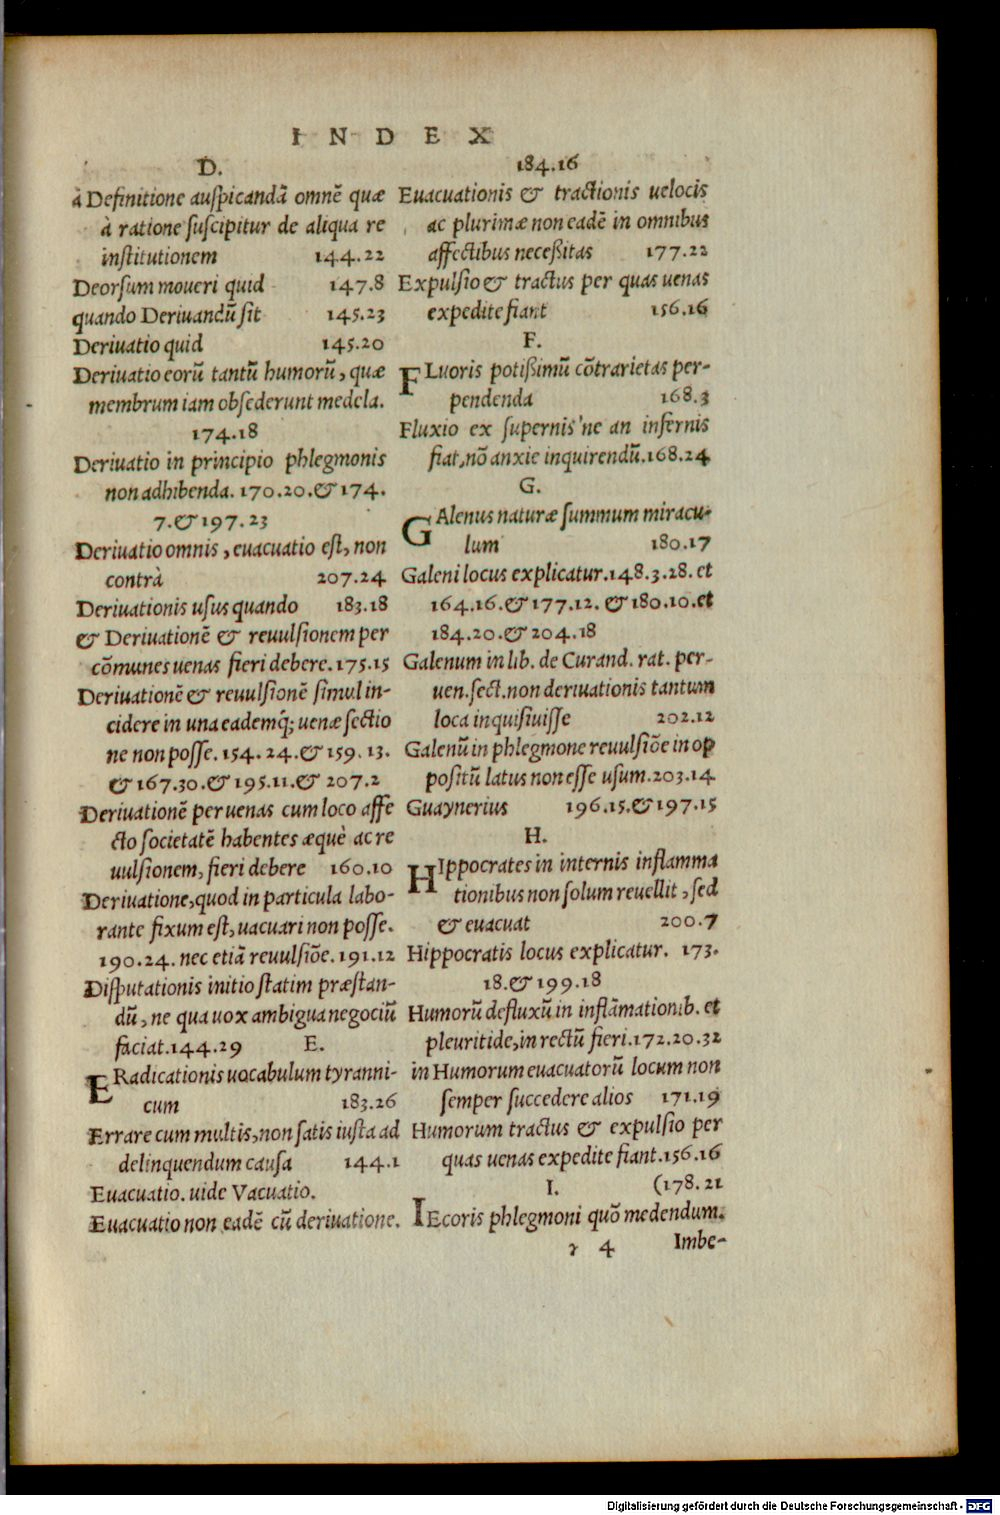 INDEX
D.
à Definitione auspicandã omnẽ quæ
à ratione suscipitur de aliqua re
institutionem 144.22
Deorsum moueri quid 147.8
quando Deriuandũ sit 145.23
Deriuatio quid 145.20
Deriuatio eorũ tantũ humorũ, quæ
membrum iam obsederunt medela.
174.18
Deriuatio in principio phlegmonis
non adhibenda. 170.20. & 174.
7. & 197.23
Deriuatio omnis, euacuatio est, non
contrà 207.24
Deriuationis usus quando 183.18
& Deriuationẽ & reuulsionem per
cõmunes uenas fieri debere. 175.15
Deriuationẽ & reuulsionẽ simul in-
cidere in una eademq́; uenæ sectio
ne non posse. 154.24. & 159.13.
& 167.30. & 195.11. & 207.2
Deriuationẽ per uenas cum loco affe
cto societatẽ habentes æquè ac re
uulsionem, fieri debere 160.10
Deriuatione, quod in particula labo-
rante fixum est, uacuari non posse.
190.24. nec etiã reuulsiõe. 191.12
Disputationis initio statim præstan-
dũ, ne qua uox ambigua negociũ
faciat. 144.29 E.
ERadicationis uocabulum tyranni-
cum 183.26
Errare cum multis, non satis iusta ad
delinquendum causa 144.1
Euacuatio. uide Vacuatio.
Euacuatio non eadẽ cũ deriuatione.
184.16
Euacuationis & tractionis uelocis
ac plurimæ non eadẽ in omnibus
affectibus neceßitas 177.22
Expulsio & tractus per quas uenas
expedite fiant 156.16
F.
FLuoris potißimũ cõtrarietas per-
pendenda 168.3
Fluxio ex supernis'ne an infernis
fiat, nõ anxie inquirendũ. 168.24
G.
GAlenus naturæ summum miracu-
lum 180.17
Galeni locus explicatur. 148.3.28. et
164.16. & 177.12. & 180.10. et
184.20. & 204.18
Galenum in lib. de Curand. rat. per-
uen. sect. non deriuationis tantum
loca inquisiuisse 202.12
Galenũ in phlegmone reuulsiõe in op
positũ latus non esse usum. 203.14
Guaynerius 196.15. & 197.15
H.
HIppocrates in internis inflamma
tionibus non solum reuellit, sed
& euacuat 200.7
Hippocratis locus explicatur. 173.
18. & 199.18
Humorũ defluxũ in inflãmationib. et
pleuritide, in rectũ fieri. 172.20.32
in Humorum euacuatorũ locum non
semper succedere alios 171.19
Humorum tractus & expulsio per
quas uenas expedite fiant. 156.16
I. (178.21
IEcoris phlegmoni quõ medendum.
γ 4 Imbe-
Digitalisierung gefördert durch die Deutsche Forschungsgemeinschaft - DFG